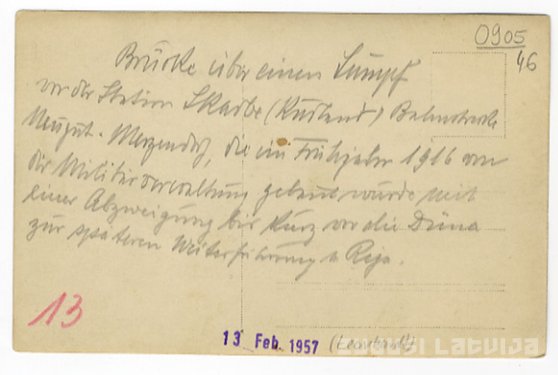 0905
46
Brücke über einen Sumpf
vor der Station Skarbe (Kurland) Bahnstrecke
Neugut-Merzendorf, die im Frühjahr 1916 von
der Militärverwaltung gebaut wurde mit
einer Abzweigung bis kurz vor die Düna
zur späteren Weiterführung n Riga.
13
13 Feb. 1957 (Leonhardt)
Latvija